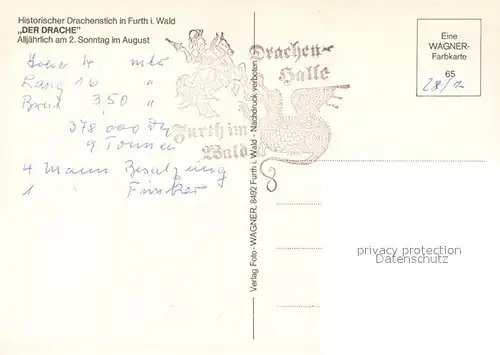 Historischer Drachenstich in Furth i. Wald
„DER DRACHE"
Alljährlich am 2. Sonntag im August
Höhe 4 mtr
Lang 16 "
Breit 3,50 "
378 000 DM
9 Tonnen
4 Mann Besatzung
1 " Funker
Drachen-
Halle
Furth im
Wald
Verlag Foto-WAGNER, 8492 Furth i. Wald - Nachdruck verboten
Eine
WAGNER-
Farbkarte
65
privacy protection
AnsichtskartenVersand.com